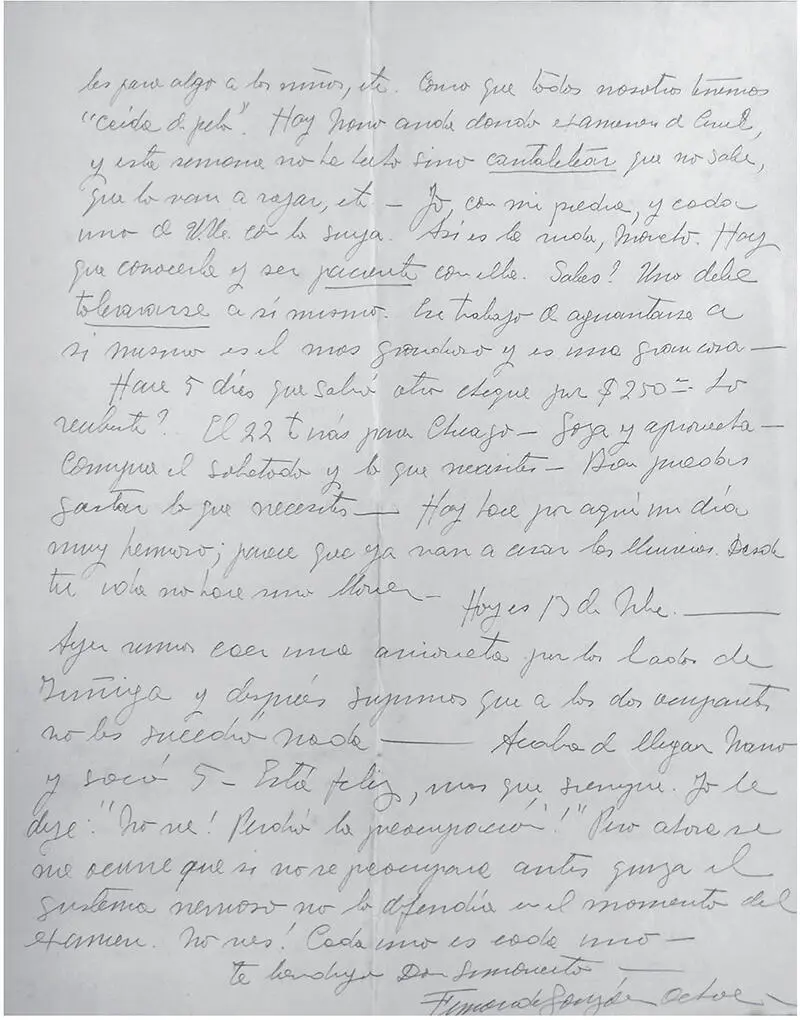 les para algo a los niños, etc. Como que todos nosotros tenemos
"caída de pelo". Hoy Nano anda dando examen de Civil,
y esta semana no ha hecho sino cantaletear que no sabe,
que lo van a rajar, etc — Yo, con mi piedra, y cada
uno de Uds. con la suya. Así es la vida, . Hay
que conocerla y ser paciente con ella. Sabes? Uno debe
tolerararse a sí mismo. Ese trabajo de aguantarse a
sí mismo es el más grandioso y es una gran cosa —
Hace 5 días que salió otro cheque por $250 =. Lo
recibiste? El 22 te irás para Chicago — Goza y aprovecha —
Compra el sobretodo y lo que necesites — Bien puedes
gastar lo que necesites — Hoy hace por aquí un día
muy hermoso; parece que ya van a cesar las lluvias. Desde
tu ida no hace sino llover —
Hoy es 13 de —
Ayer vimos caer una avioneta por los lados de
Zúñiga y después supimos que a los dos ocupantes
no les sucedió nada — Acaba de llegar Nano
y sacó 5 — Está feliz, más que siempre. Yo le
dije: "No ve! Perdió la preocupación!" Pero ahora se
me ocurre que si no se preocupara antes quizá el
sistema nervioso no lo defendía en el momento del
examen. No ves! Cada uno es cada uno —
te bendiga Don —
Fernando González Ochoa —